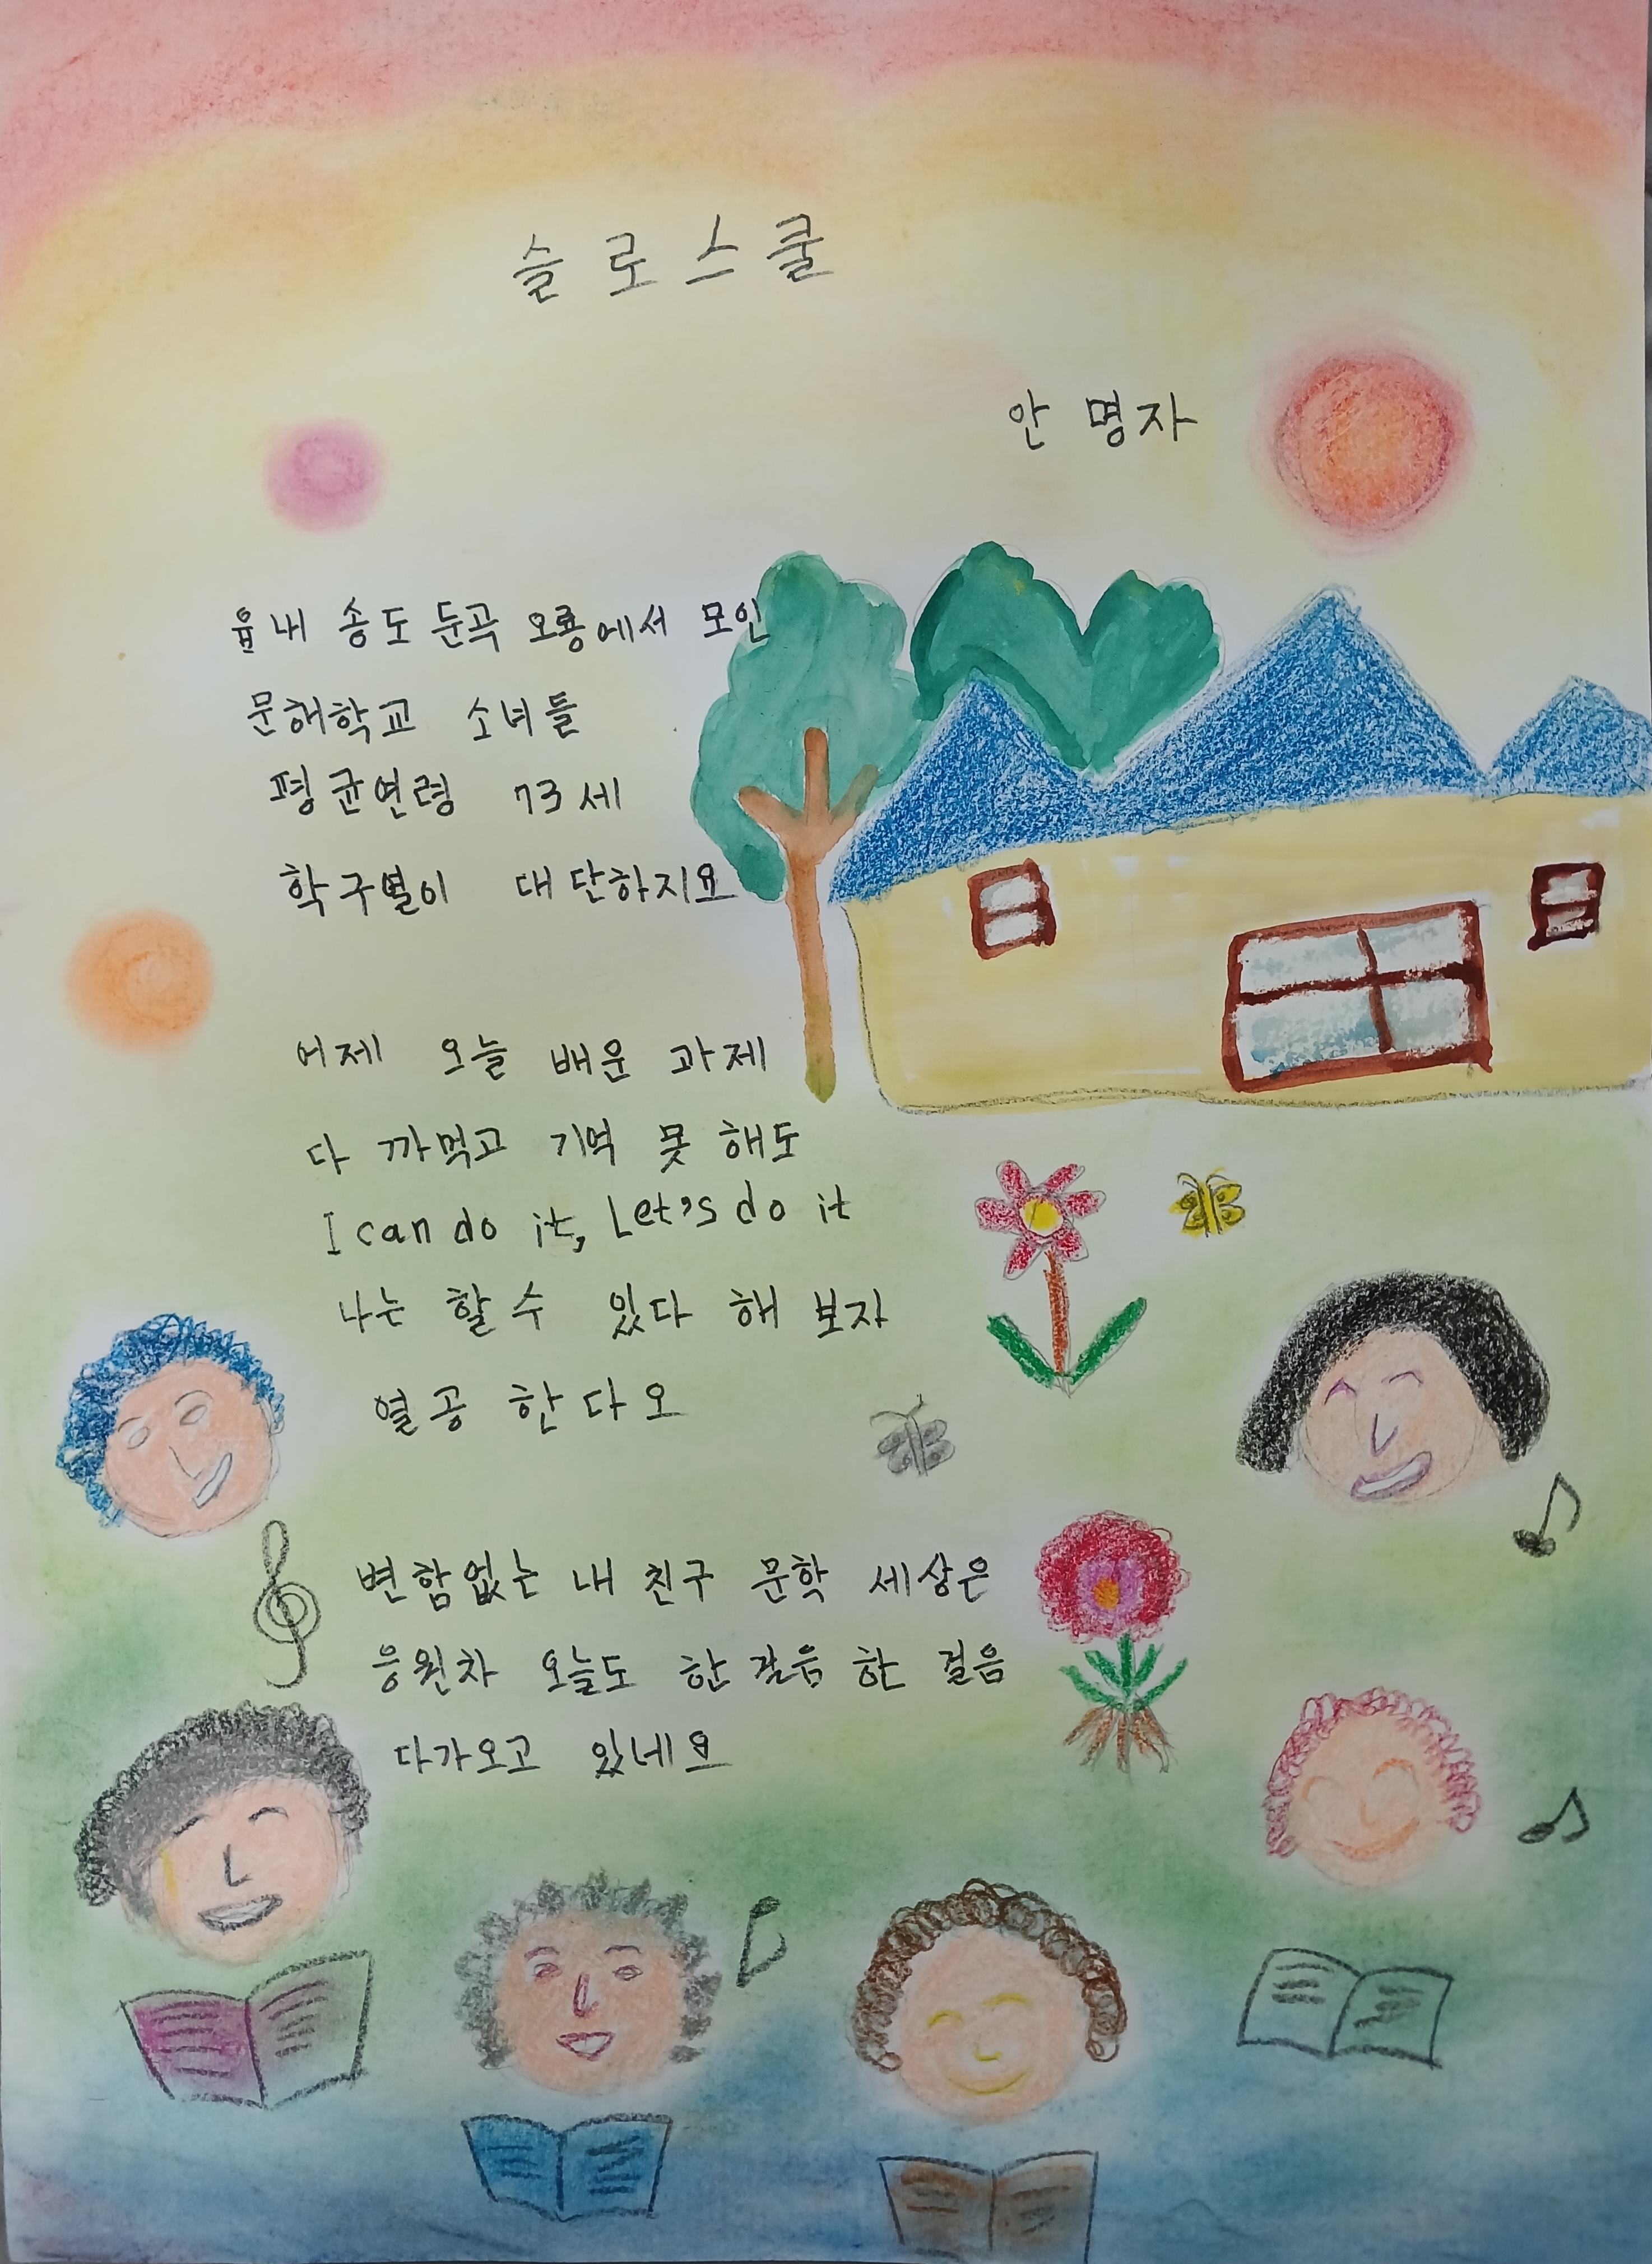 슬로스쿨
안 명자
읍내 송도 둔곡 오룡에서 모인
문해학교 소녀들
평균연령 73세
학구열이 대단하지요
어제 오늘 배운 과제
다 까먹고 기억 못 해도
I can do it, Let's do it
나는 할 수 있다 해 보자
열공 한다오
변함없는 내 친구 문학 세상은
응원차 오늘도 한 걸음 한 걸음
다가오고 있네요